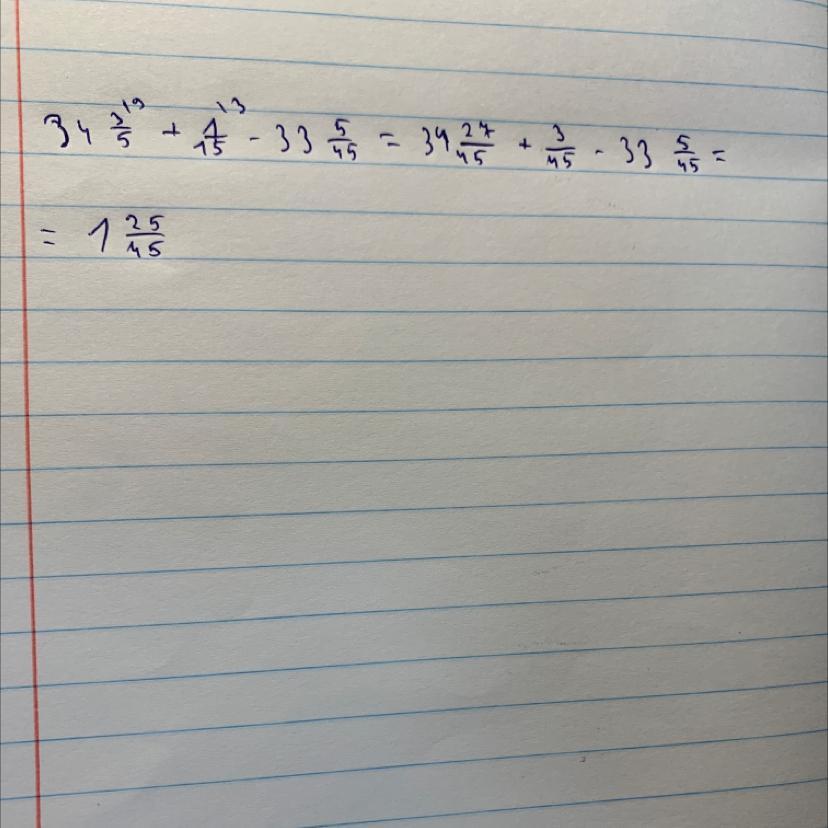 34 3/5 \9 + 1/15 \3 - 33 5/45 = 34 27/45 + 3/45 - 33 5/45 =
= 1 25/45